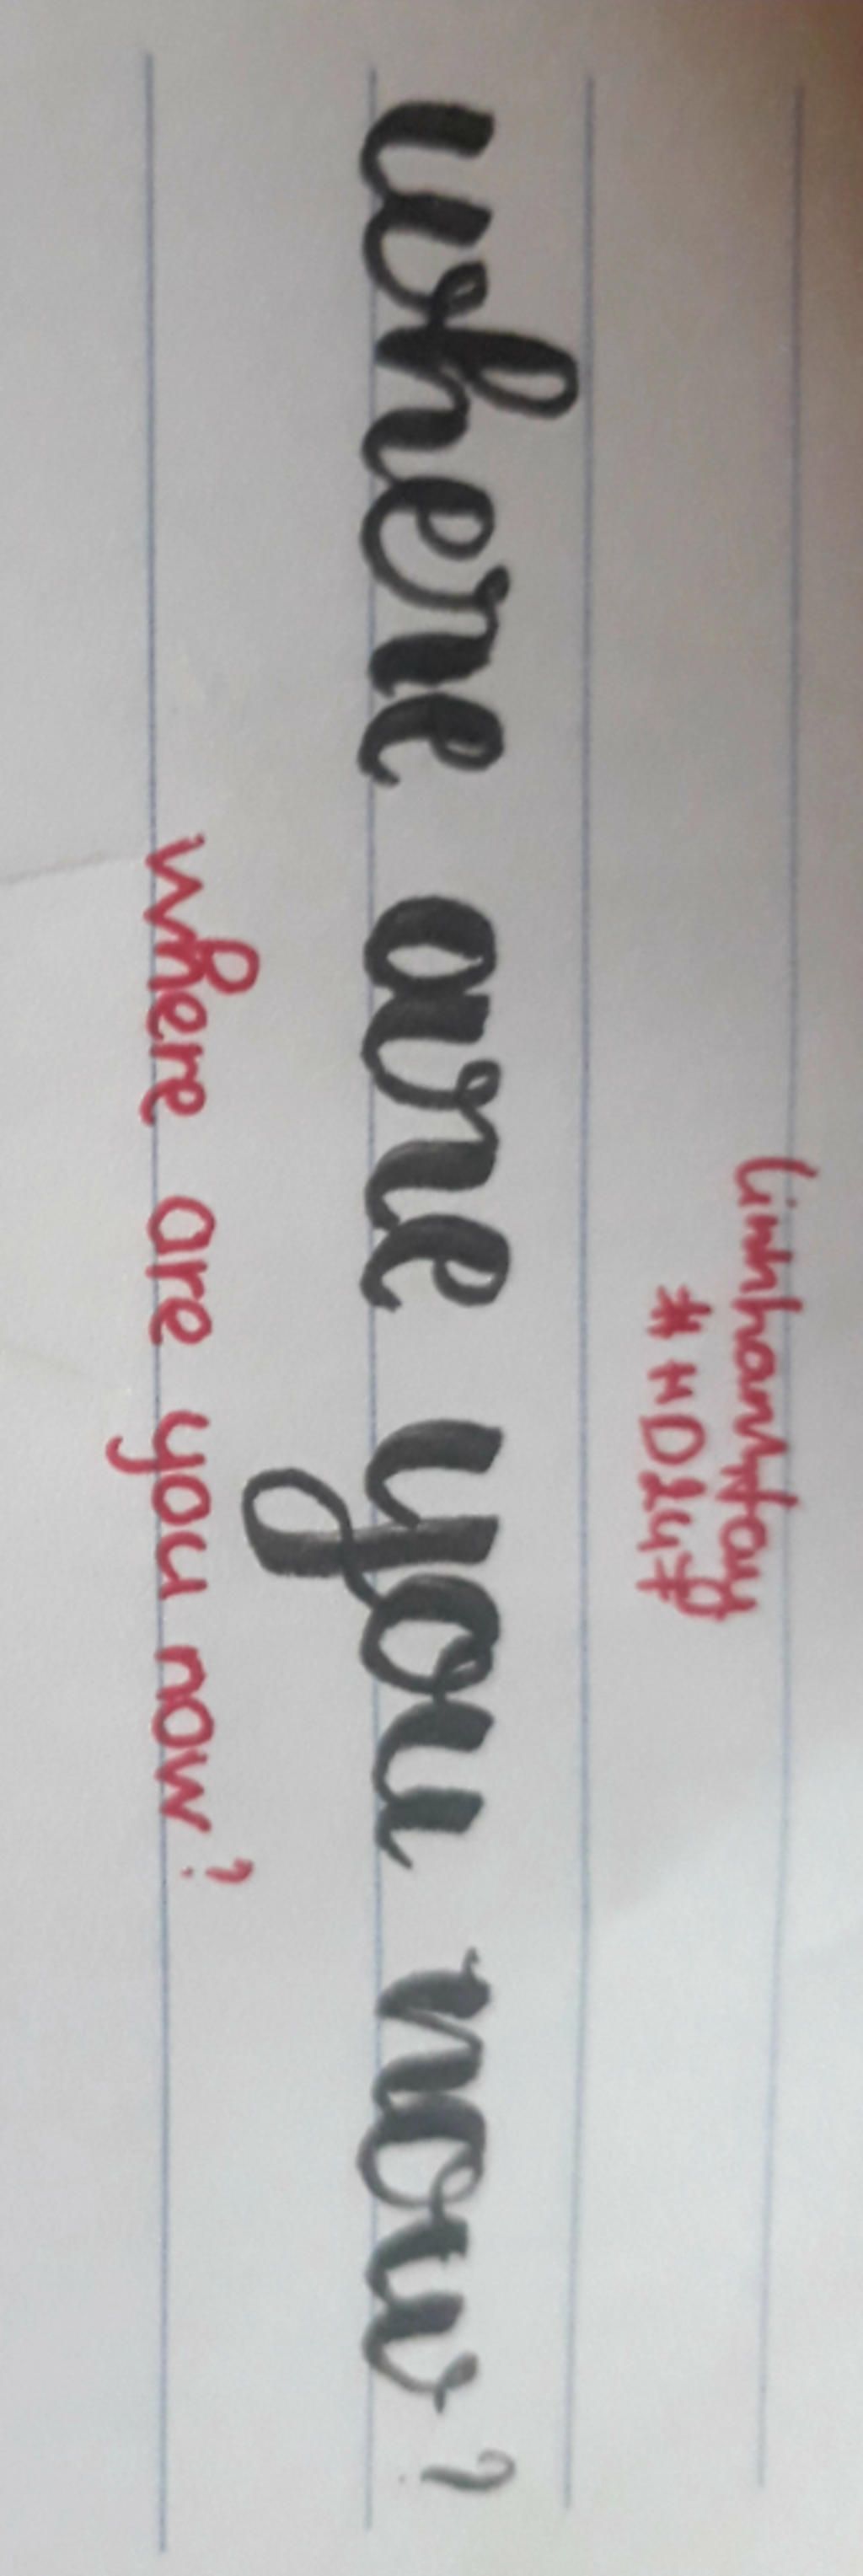 #HD247
where are you now?
where are you now?